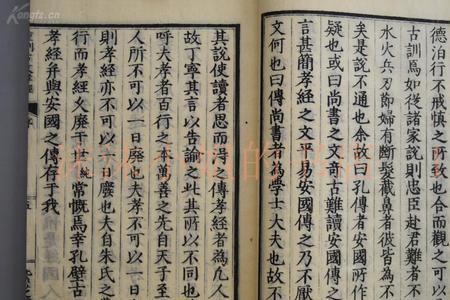 德泊行不戒慎之所致也合而觀之可以
古訓焉如後諸家說則忠臣赴君難者不
水火兵刃節婦有斷髮截鼻者彼皆為不
矣是說不通也余故曰孔傳者安國所作
疑也或曰尚書之文奇古難讀安國傳之
言甚簡孝經之文平易安國傳之乃不厭
文何也曰傳尚書者為學士大夫也故不
其說使讀者思而得之傳孝經者為凡人
故丁寧其言以告諭之此其所以不同也
呼夫孝者百行之本萬善之先自天子至
人所不可以一日廢也夫孝不可以一日
則孝經亦不可以一日廢也夫自朱氏之
行而孝經久廢于世純常慨焉幸孔壁古
孝經并與安國之傳存于我